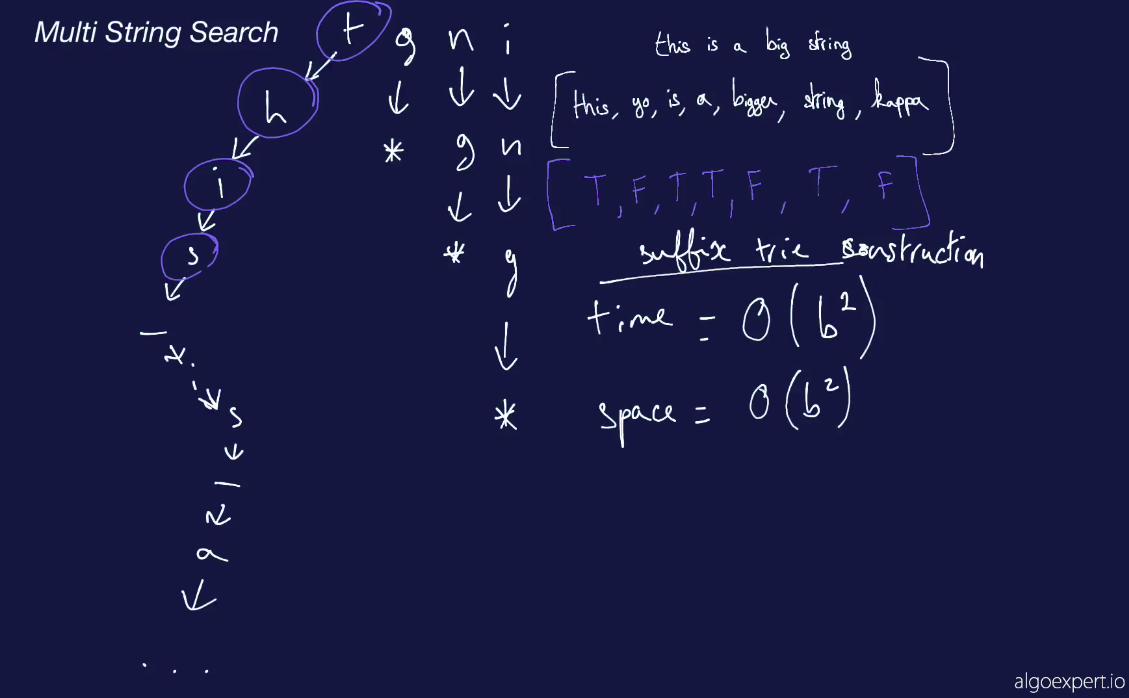 Multi String Search
t g n i
h * g n
i * g
s *
_
i
s
_
a
. . .
this is a big string
[this, yo, is, a, bigger, string, kappa]
[T, F, T, T, F, T, F]
suffix trie construction
time = O(b²)
space = O(b²)
algoexpert.io